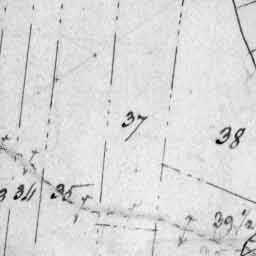 37
38
3 34 35
39½